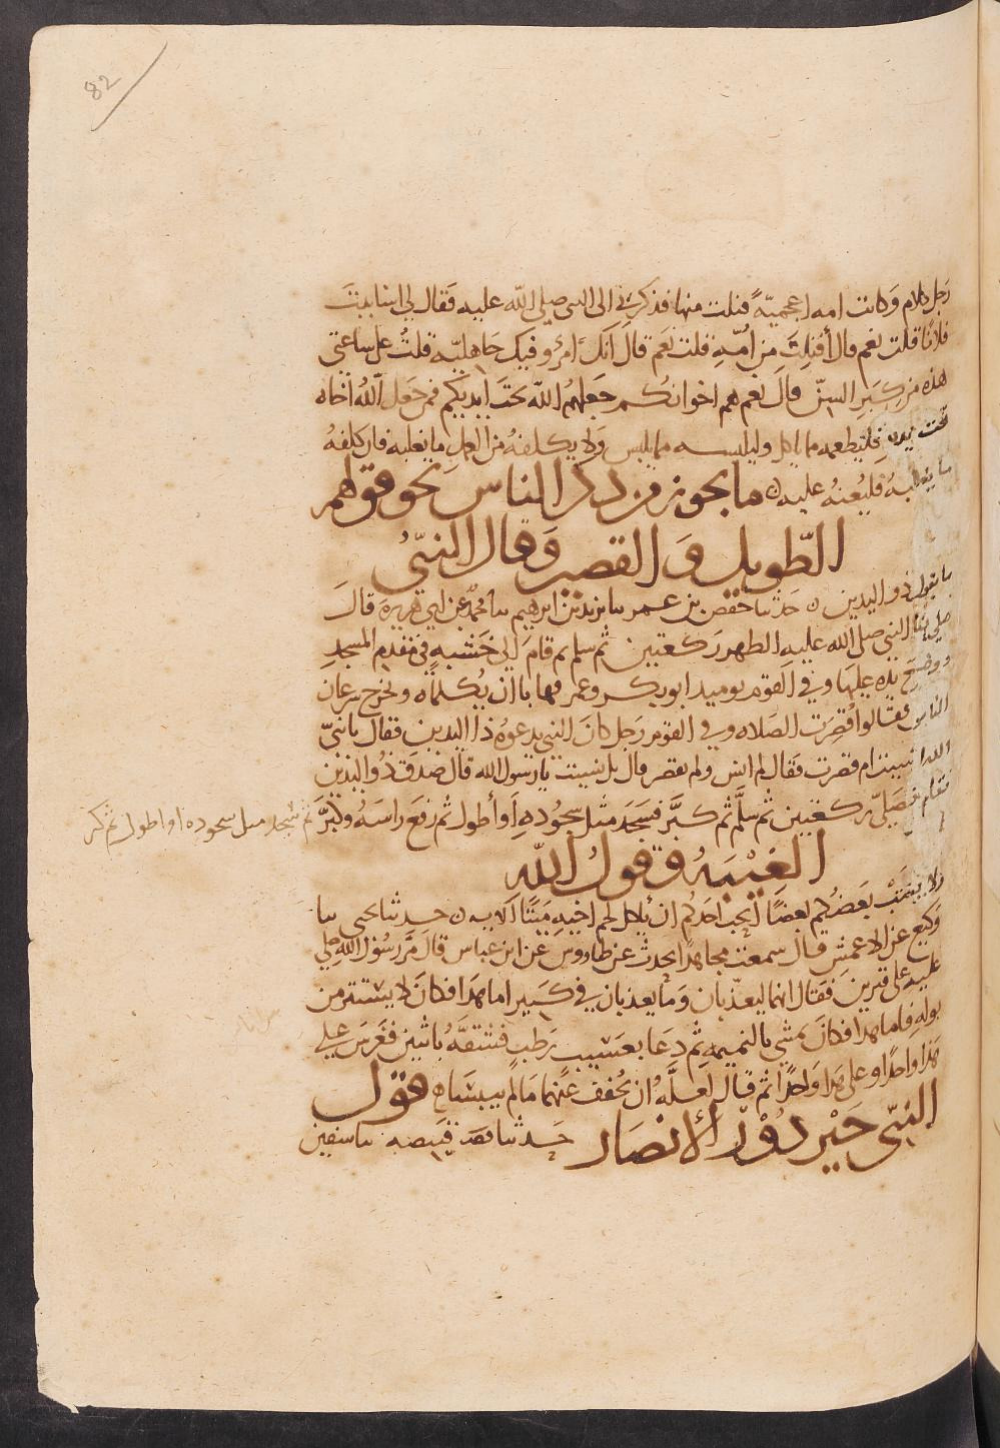 82
رجل كلام وكانت امه اعجمية فنلت منها فذكرني الى النبي صلى الله عليه فقال لي اساببت
فلانا قلت نعم قال أفنلت من امه قلت نعم قال انك امرؤ فيك جاهلية قلت على ساعتي
هذه من كبر السن قال نعم هم اخوانكم جعلهم الله تحت ايديكم فمن جعل الله اخاه
تحت يده فليطعمه مما ياكل وليلبسه مما يلبس ولا يكلفه من العمل ما يغلبه فان كلفه
ما يغلبه فليعنه عليه ما يجوز من ذكر الناس نحو قولهم
الطويل و القصير وقال النبي
ما يقول ذو اليدين حدثنا حفص بن عمر سا يزيد بن ابرهيم سا محمد عن ابي هريرة قال
صلى بنا النبي صلى الله عليه الظهر ركعتين ثم سلم ثم قام إلى خشبة في مقدم المسجد
ووضع يده عليها وفي القوم يوميذ ابو بكر وعمر فهابا ان يكلماه وخرج سرعان
الناس فقالوا قصرت الصلاه وفي القوم رجل كان النبي يدعوه ذا اليدين فقال يا نبي
الله انسيت ام قصرت فقال لم انس ولم تقصر قال بل نسيت يا رسول الله قال صدق ذو اليدين
فقام فصلى ركعتين ثم سلم ثم كبر فسجد مثل سجوده أو أطول ثم رفع راسه وكبر ثم سجد مثل سجوده او اطول ثم
الغيبة وقول الله
ولا يغتب بعضكم بعضا أيحب احدكم ان ياكل لحم اخيه ميتا الايه حدثنا يحيى سا
وكيع عن الاعمش قال سمعت مجاهدا يحدث عن طاووس عن ابن عباس قال مر رسول الله صلى
عليه على قبرين فقال انهما ليعذبان وما يعذبان في كبير اما هذا فكان لا يستتر من
بوله فاما هذا فكان يمشي بالنميمه ثم دعا بعسيب رطب فشقه باثنين فغرس على
هذا واحدا وعلى هذا واحدا ثم قال لعله ان يخفف عنهما ما لم ييبسا قول
النبي خير دور الانصار حدثنا قبيصه سا سفين